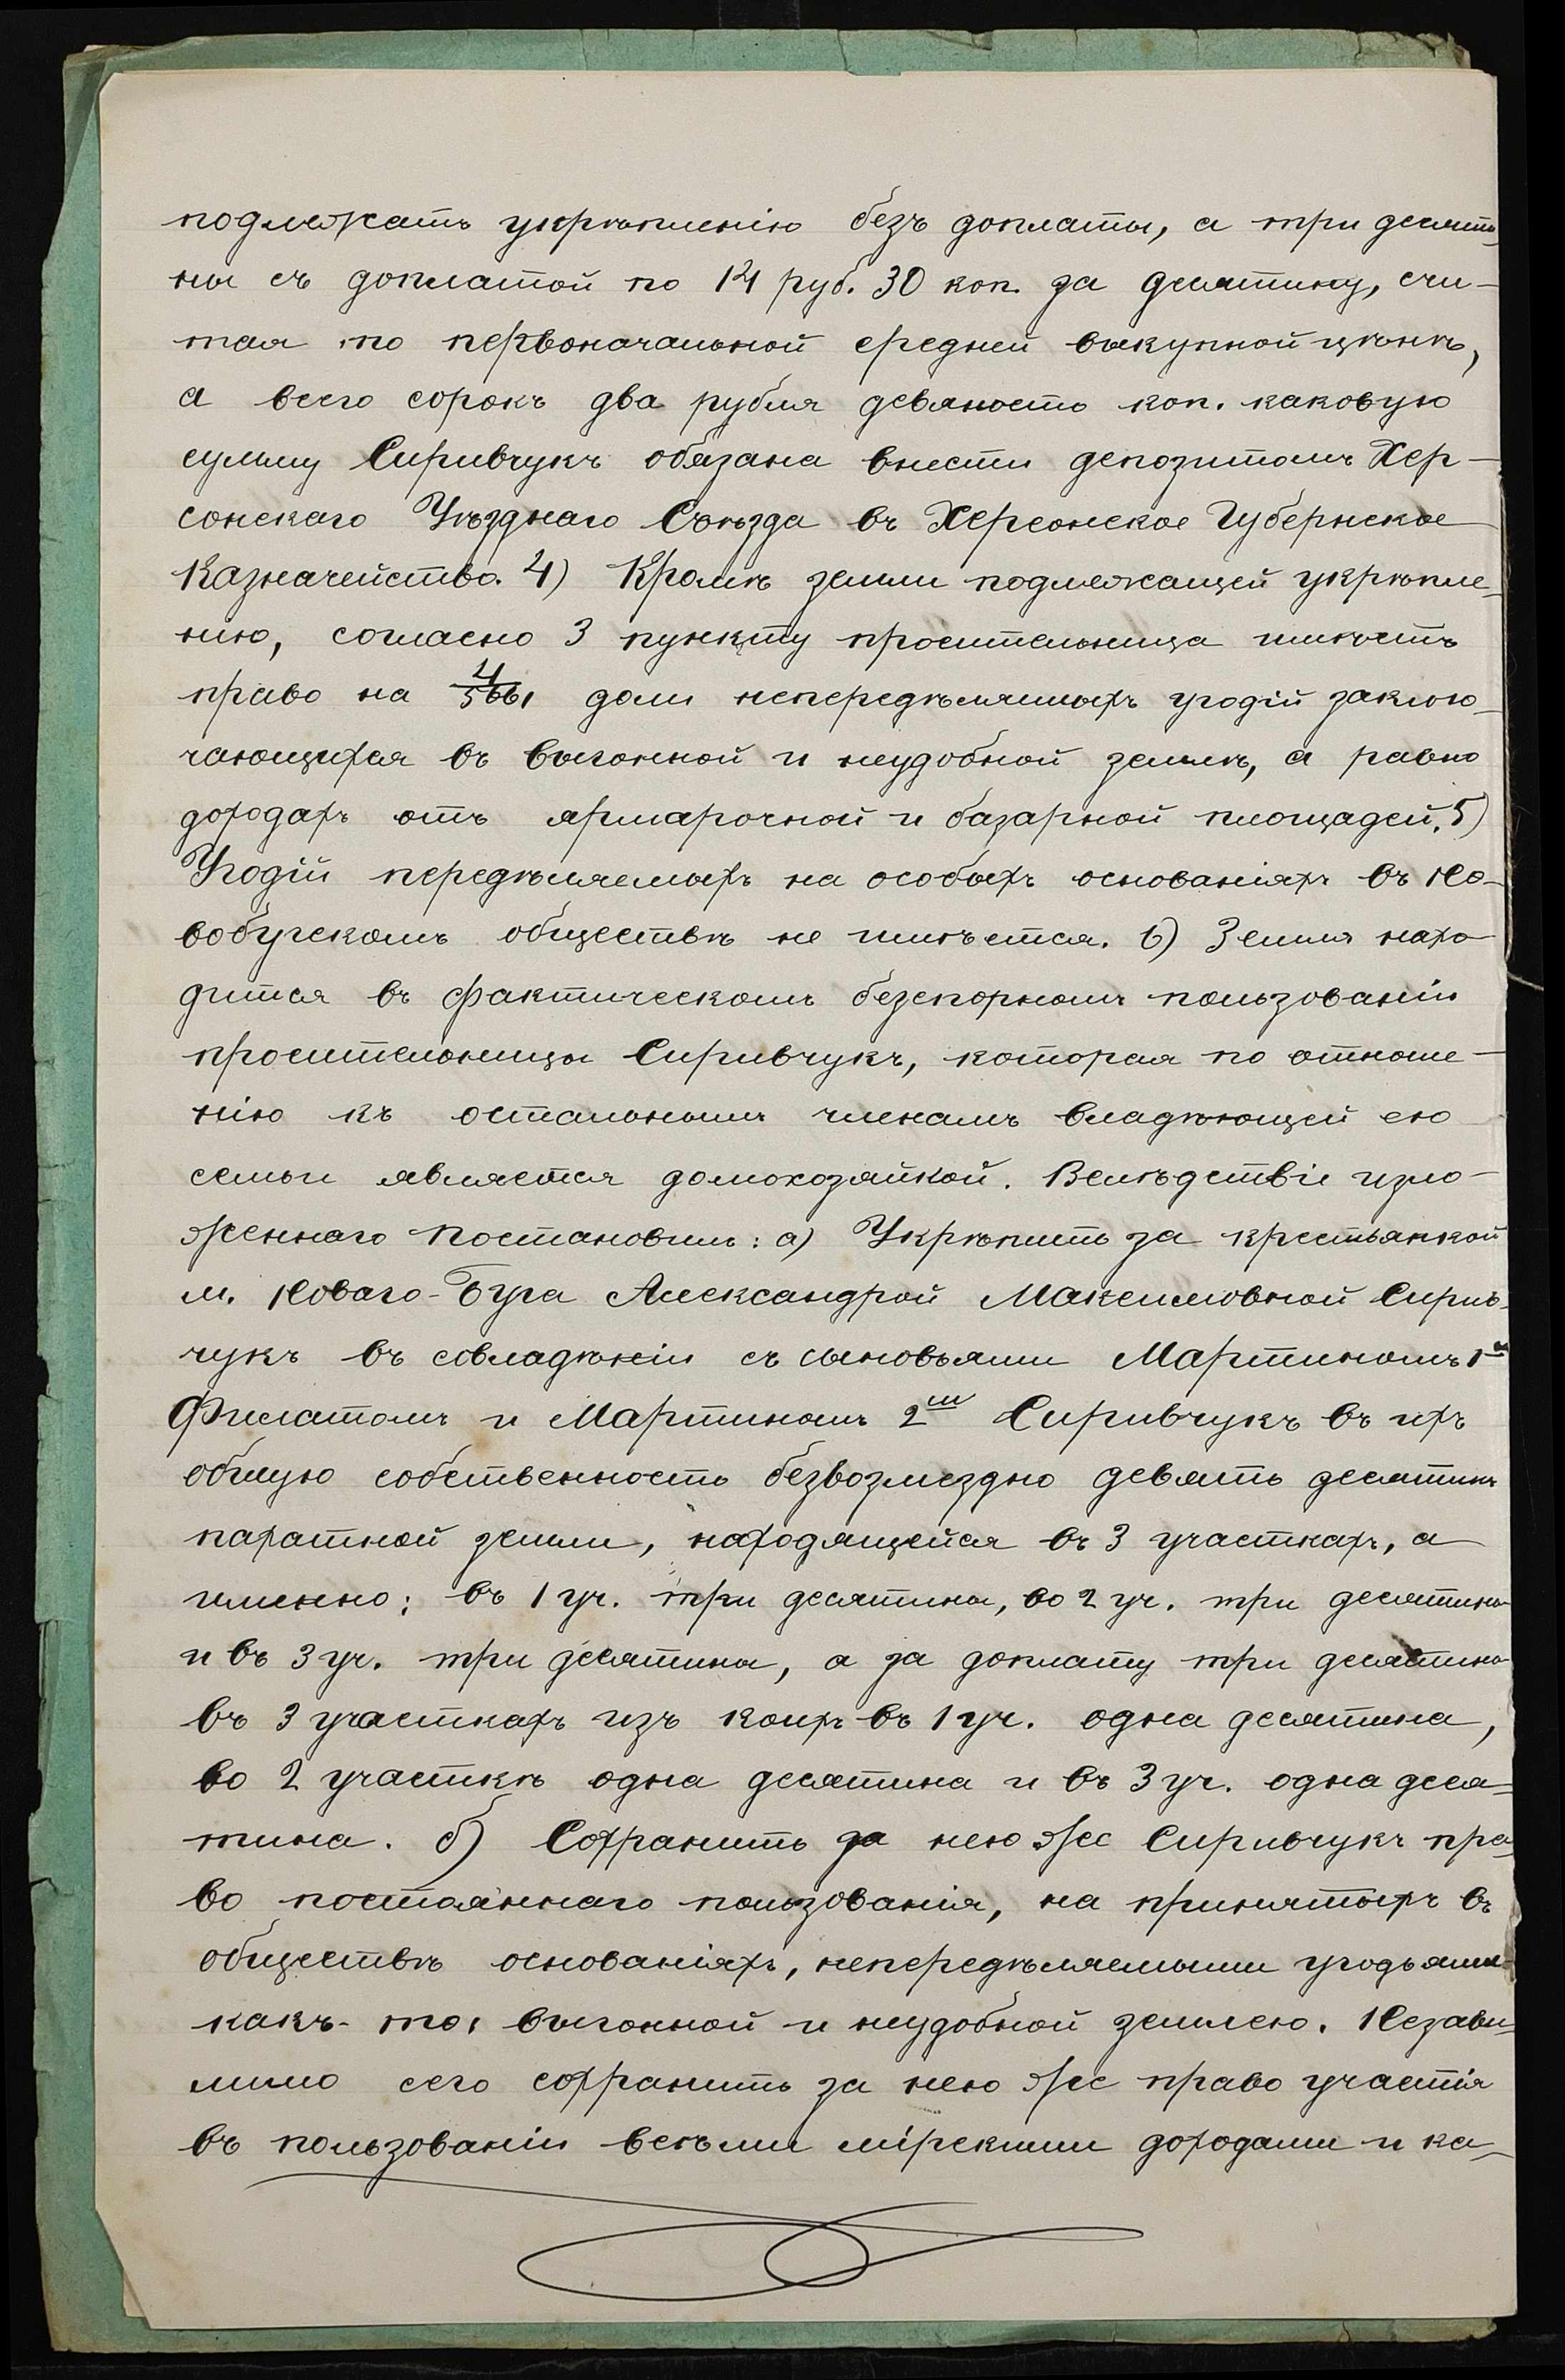 подлежатъ укрѣпленію безъ доплаты, а три десяти-
ны съ доплатой по 14 руб. 30 коп. за десятину, счи-
тая по первоначальной средней выкупной цѣнѣ,
а всего сорокъ два рубля девяносто коп. каковую
сумму Сиривчукъ обязана внести депозитомъ Хер-
сонскаго Уѣзднаго Съѣзда въ Херсонское Губернское
Казначейство. 4) Кромѣ земли подлежащей укрѣпле-
нію, согласно 3 пункту просительница имѣетъ
право на 4/5661 доли непередѣлянныхъ угодій заклю-
чающихся въ выгонной и неудобной землѣ, а равно
доходахъ отъ ярмарочной и базарной площадей. 5)
Угодій передѣляемыхъ на особыхъ основаніяхъ въ Но-
вобугскомъ обществѣ не имѣется. 6) Земля нахо-
дится въ фактическомъ безспорномъ пользованіи
просительницы Сиривчукъ, которая по отноше-
нію къ остальнымъ членамъ владѣющей ею
семьи является домохозяйкой. Вслѣдствіе изло-
женнаго постановилъ: а) Укрѣпить за крестьянкой
м. Новаго-Буга Александрой Максимовной Сирив-
чукъ въ совладѣніи съ сыновьями Мартиномъ 1-мъ
Филатомъ и Мартиномъ 2-мъ Сиривчукъ въ ихъ
общую собственность безвозмездно девять десятинъ
пахатной земли, находящейся въ 3 участкахъ, а
именно: въ 1 уч. три десятины, во 2 уч. три десятины
и въ 3 уч. три десятины, а за доплату три десятины
въ 3 участкахъ изъ коихъ въ 1 уч. одна десятина,
во 2 участкѣ одна десятина и въ 3 уч. одна деся-
тина. б) Сохранить за нею же Сиривчукъ пра-
во постояннаго пользованія, на принятыхъ въ
обществѣ основаніяхъ, непередѣляемыми угодьями
какъ-то: выгонной и неудобной землею. Незави-
симо сего сохранить за нею же право участія
въ пользованіи всѣми мірскими доходами и ка-